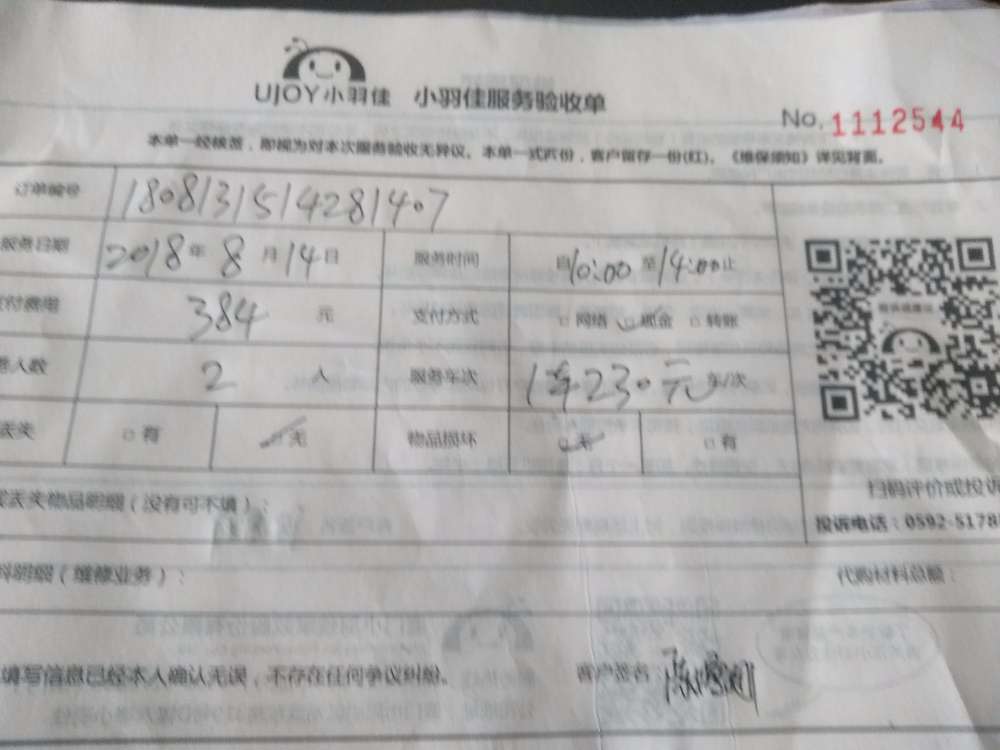 UJOY小羽佳 小羽佳服务验收单
No. 1112544
本单一经核签，即视为对本次服务验收无异议。本单一式两份，客户留存一份(红)。《维保须知》详见背面。
订单编号 1808131514281407
服务日期 2018年8月14日 服务时间 自10:00至14:00止
付费用 384 元 支付方式 □网络 □现金 □转账
人数 2 人 服务车次 1车230元 车/次
丢失 □有 □无 物品损坏 □无 □有
丢失物品明细（没有可不填）：
扫码评价或投诉
投诉电话：0592-5178
料明细（维修业务）： 代购材料总额：
填写信息已经本人确认无误，不存在任何争议纠纷。 客户签名：